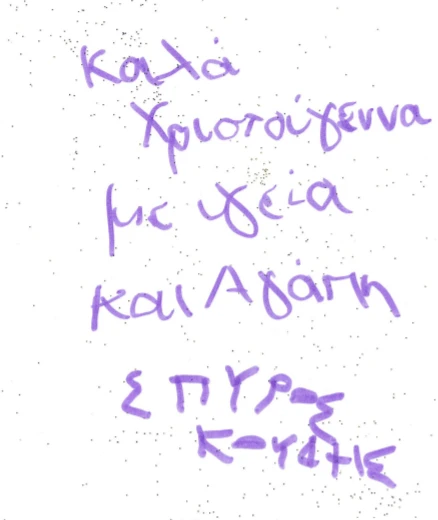 Καλά
Χριστούγεννα
με υγεία
και Αγάπη
ΣΠΥΡΟΣ